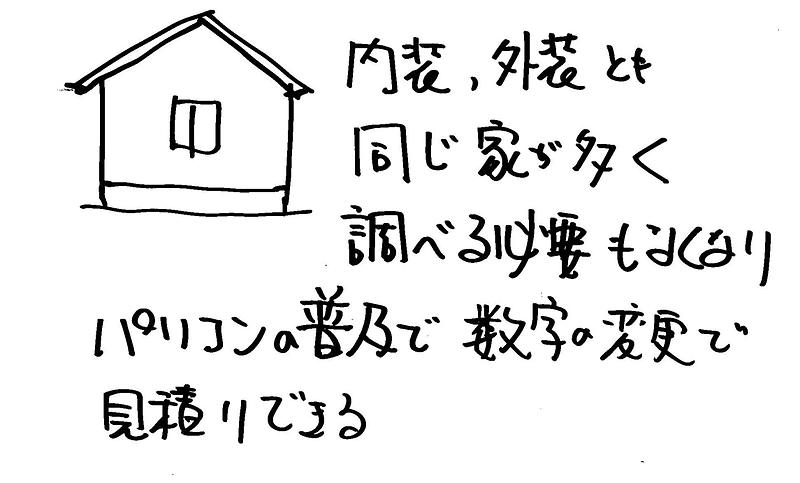 内装,外装とも
同じ家が多く
調べる必要もなくなり
パソコンの普及で数字の変更で
見積りできる